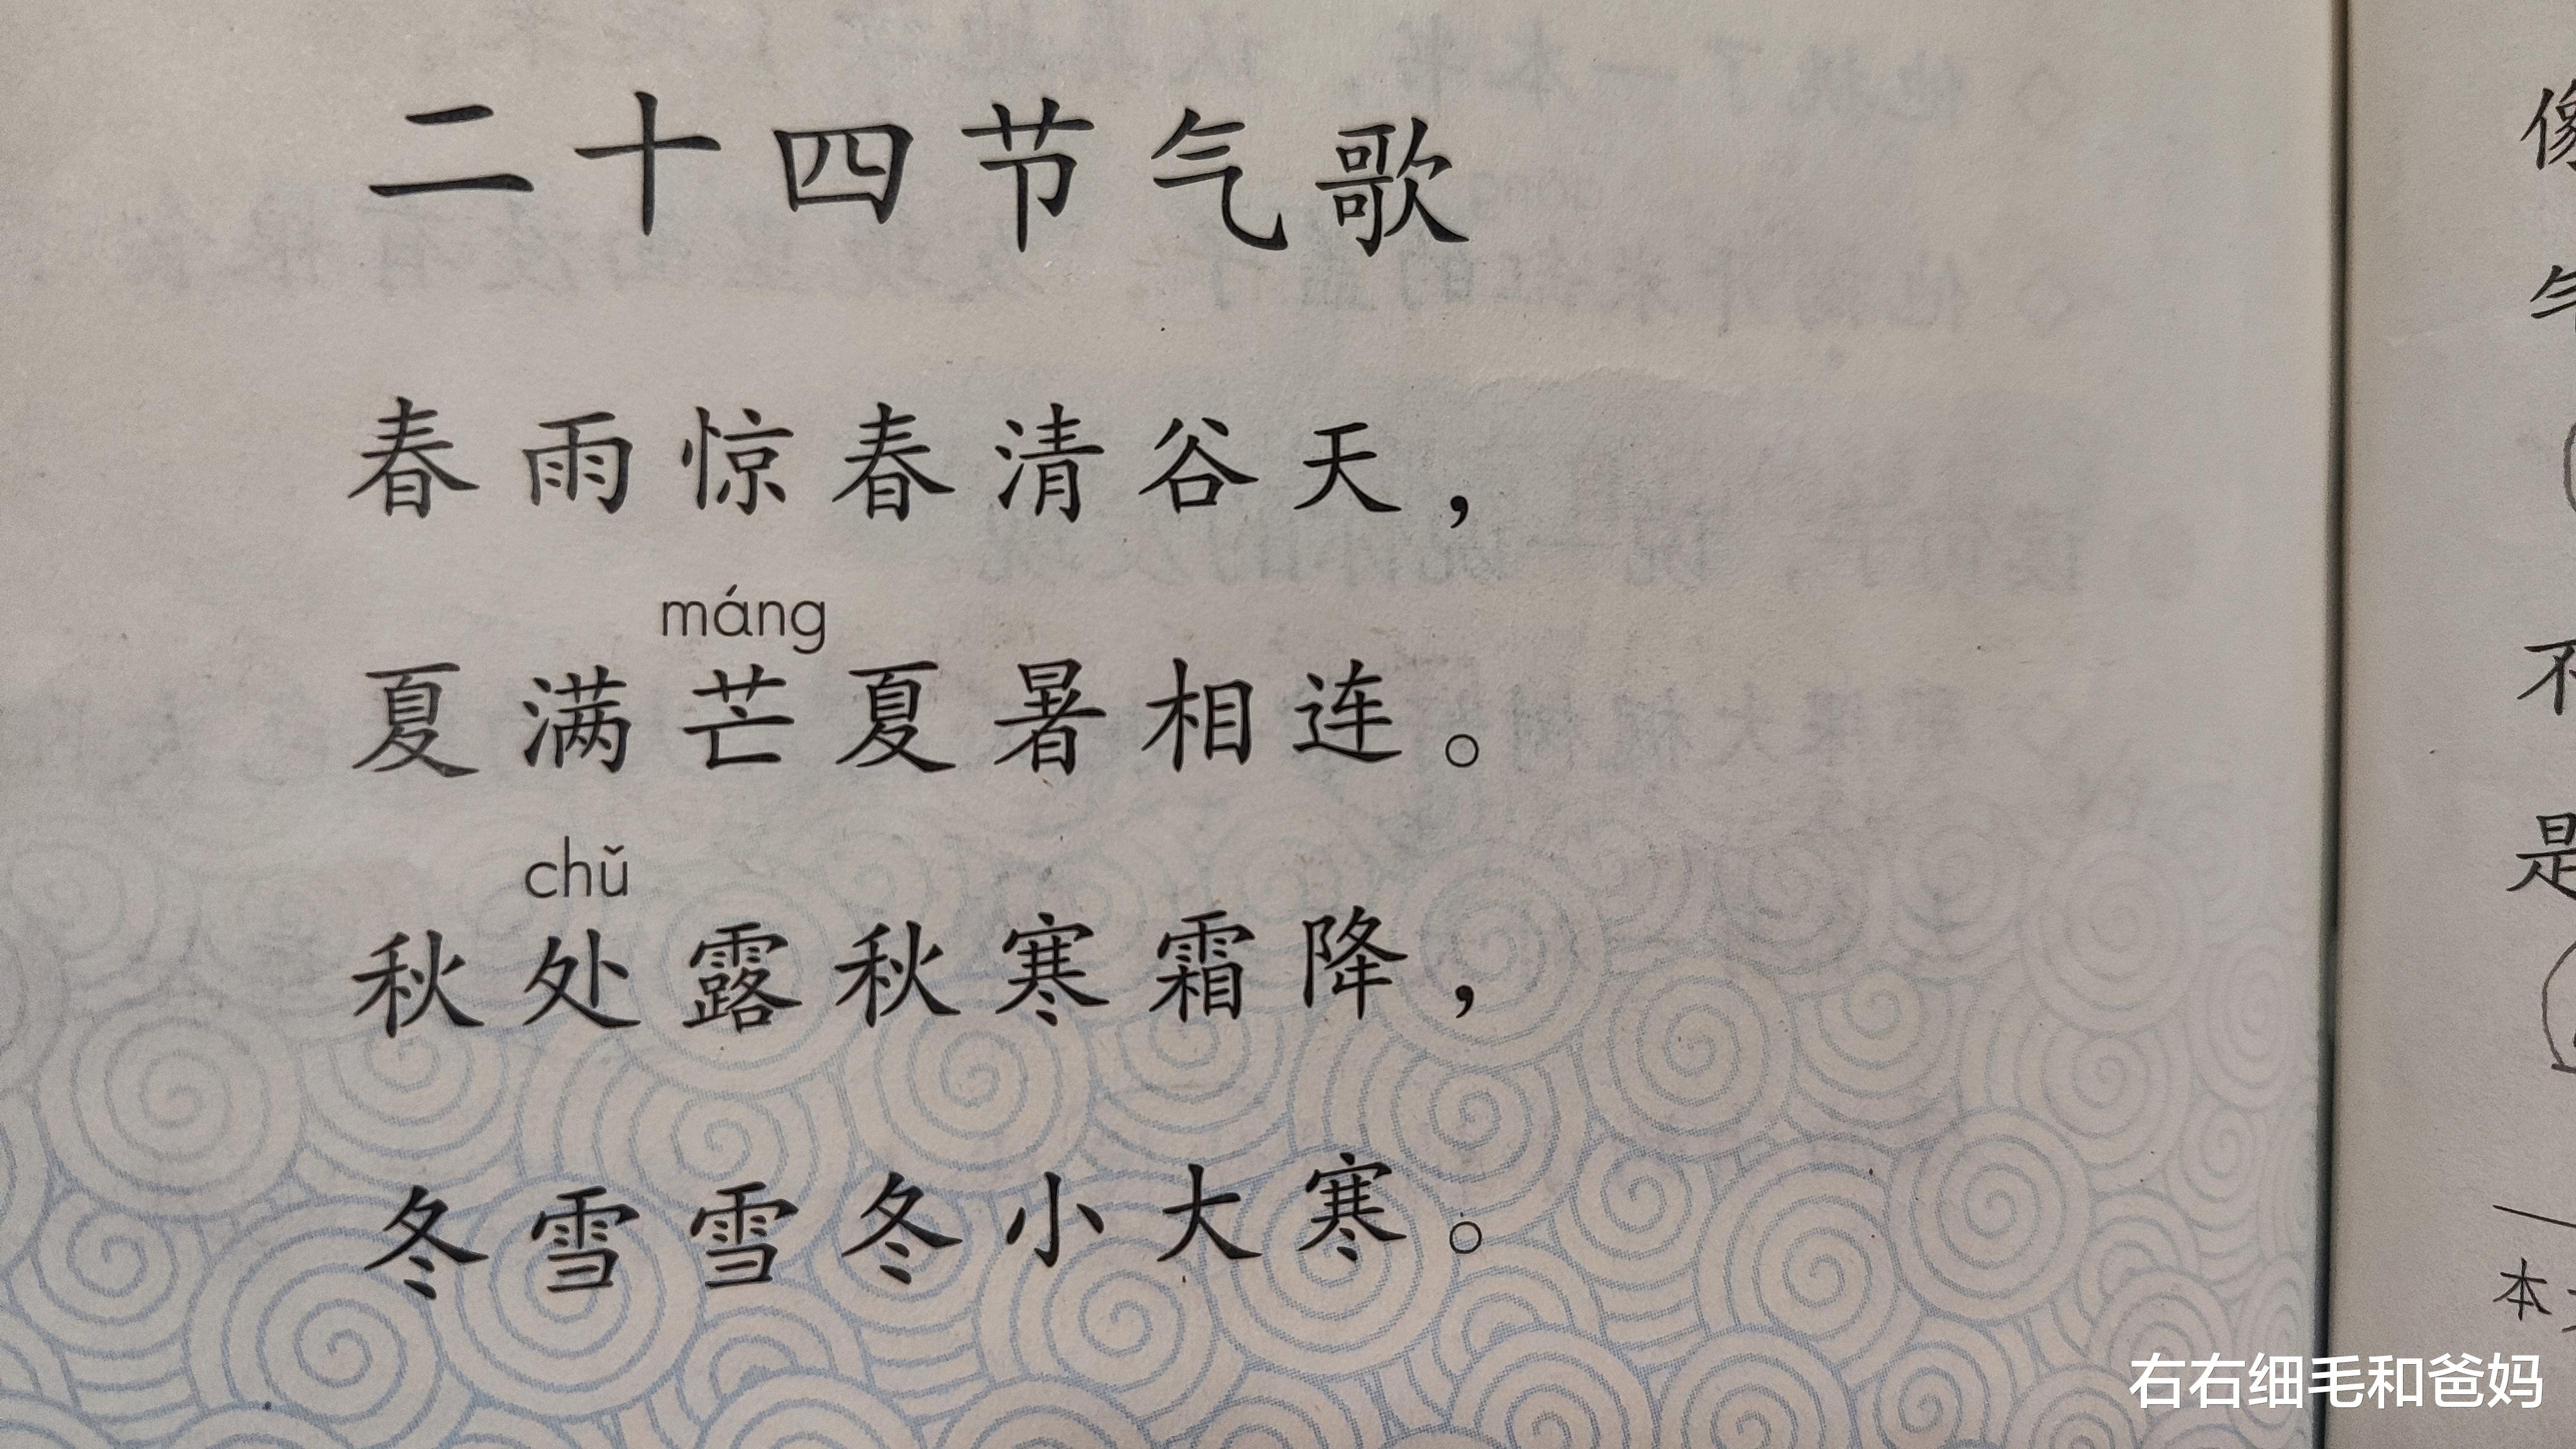 二十四节气歌
春雨惊春清谷天，
máng
夏满芒夏暑相连。
chǔ
秋处露秋寒霜降，
冬雪雪冬小大寒。
不
是
本
右右细毛和爸妈